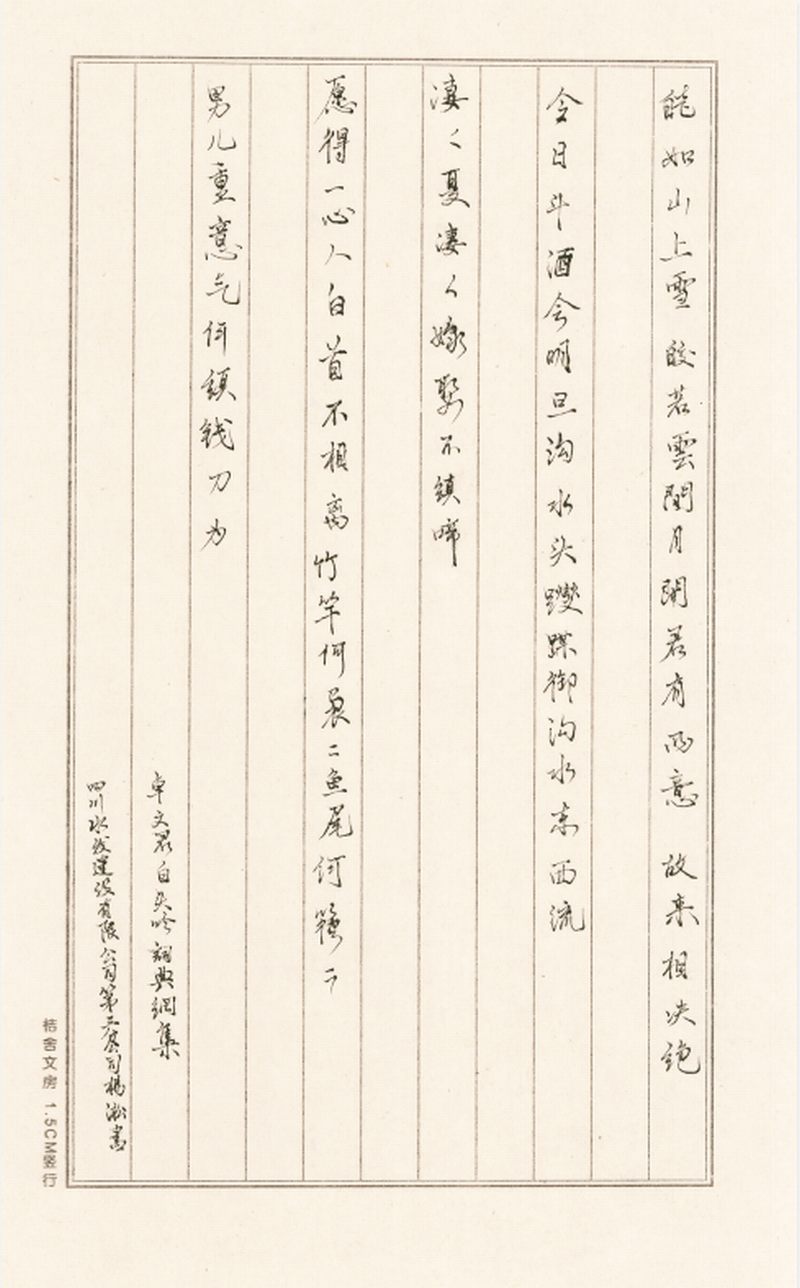 皚如山上雪皎若雲間月聞君有两意故来相决絶
今日斗酒会明旦沟水头躞蹀御沟水东西流
淒〻复淒〻嫁娶不须啼
愿得一心人白首不相离竹竿何袅〻鱼尾何簁〻
男儿重意气何须钱刀为
卓文君白头吟詞典網集
四川水发建设有限公司第三公司杨淞書
桔舍文房 1.5CM竖行